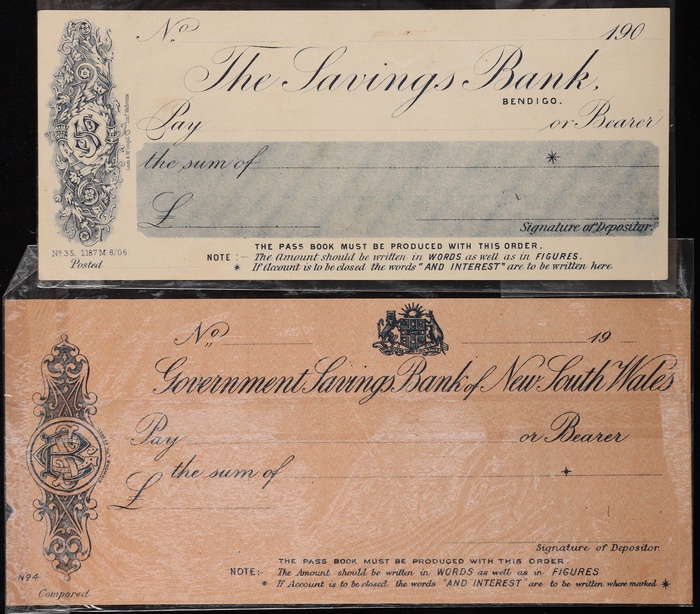 No 190
The Savings Bank,
BENDIGO.
Pay or Bearer
the sum of *
£
Signature of Depositor.
THE PASS BOOK MUST BE PRODUCED WITH THIS ORDER.
NOTE:- The Amount should be written in WORDS as well as in FIGURES.
* If Account is to be closed the words "AND INTEREST" are to be written here.
No 35. 1187M 8/06.
Posted
No 19
Government Savings Bank of New South Wales
Pay or Bearer
£ the sum of
Signature of Depositor.
THE PASS BOOK MUST BE PRODUCED WITH THIS ORDER.
NOTE:- The Amount should be written in WORDS as well as in FIGURES
* If Account is to be closed the words "AND INTEREST" are to be written where marked *
No 4
Compared